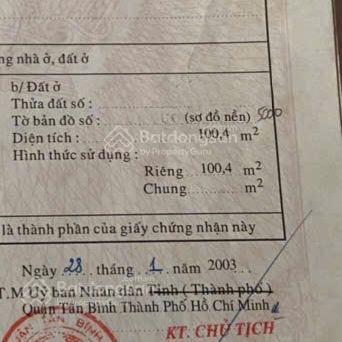 ng nhà ở, đất ở
b/ Đất ở
Thửa đất số :
Tờ bản đồ số : (sơ đồ nền)
Diện tích : 100,4 m2
Hình thức sử dụng :
Riêng 100,4 m2
Chung m2
là thành phần của giấy chứng nhận này
Ngày 28 tháng 1 năm 2003
T.M Uỷ ban Nhân dân Tỉnh ( Thành phố )
Quận Tân Bình Thành Phố Hồ Chí Minh
KT. CHỦ TỊCH
Batdongsan
by PropertyGuru
TÂN BÌNH